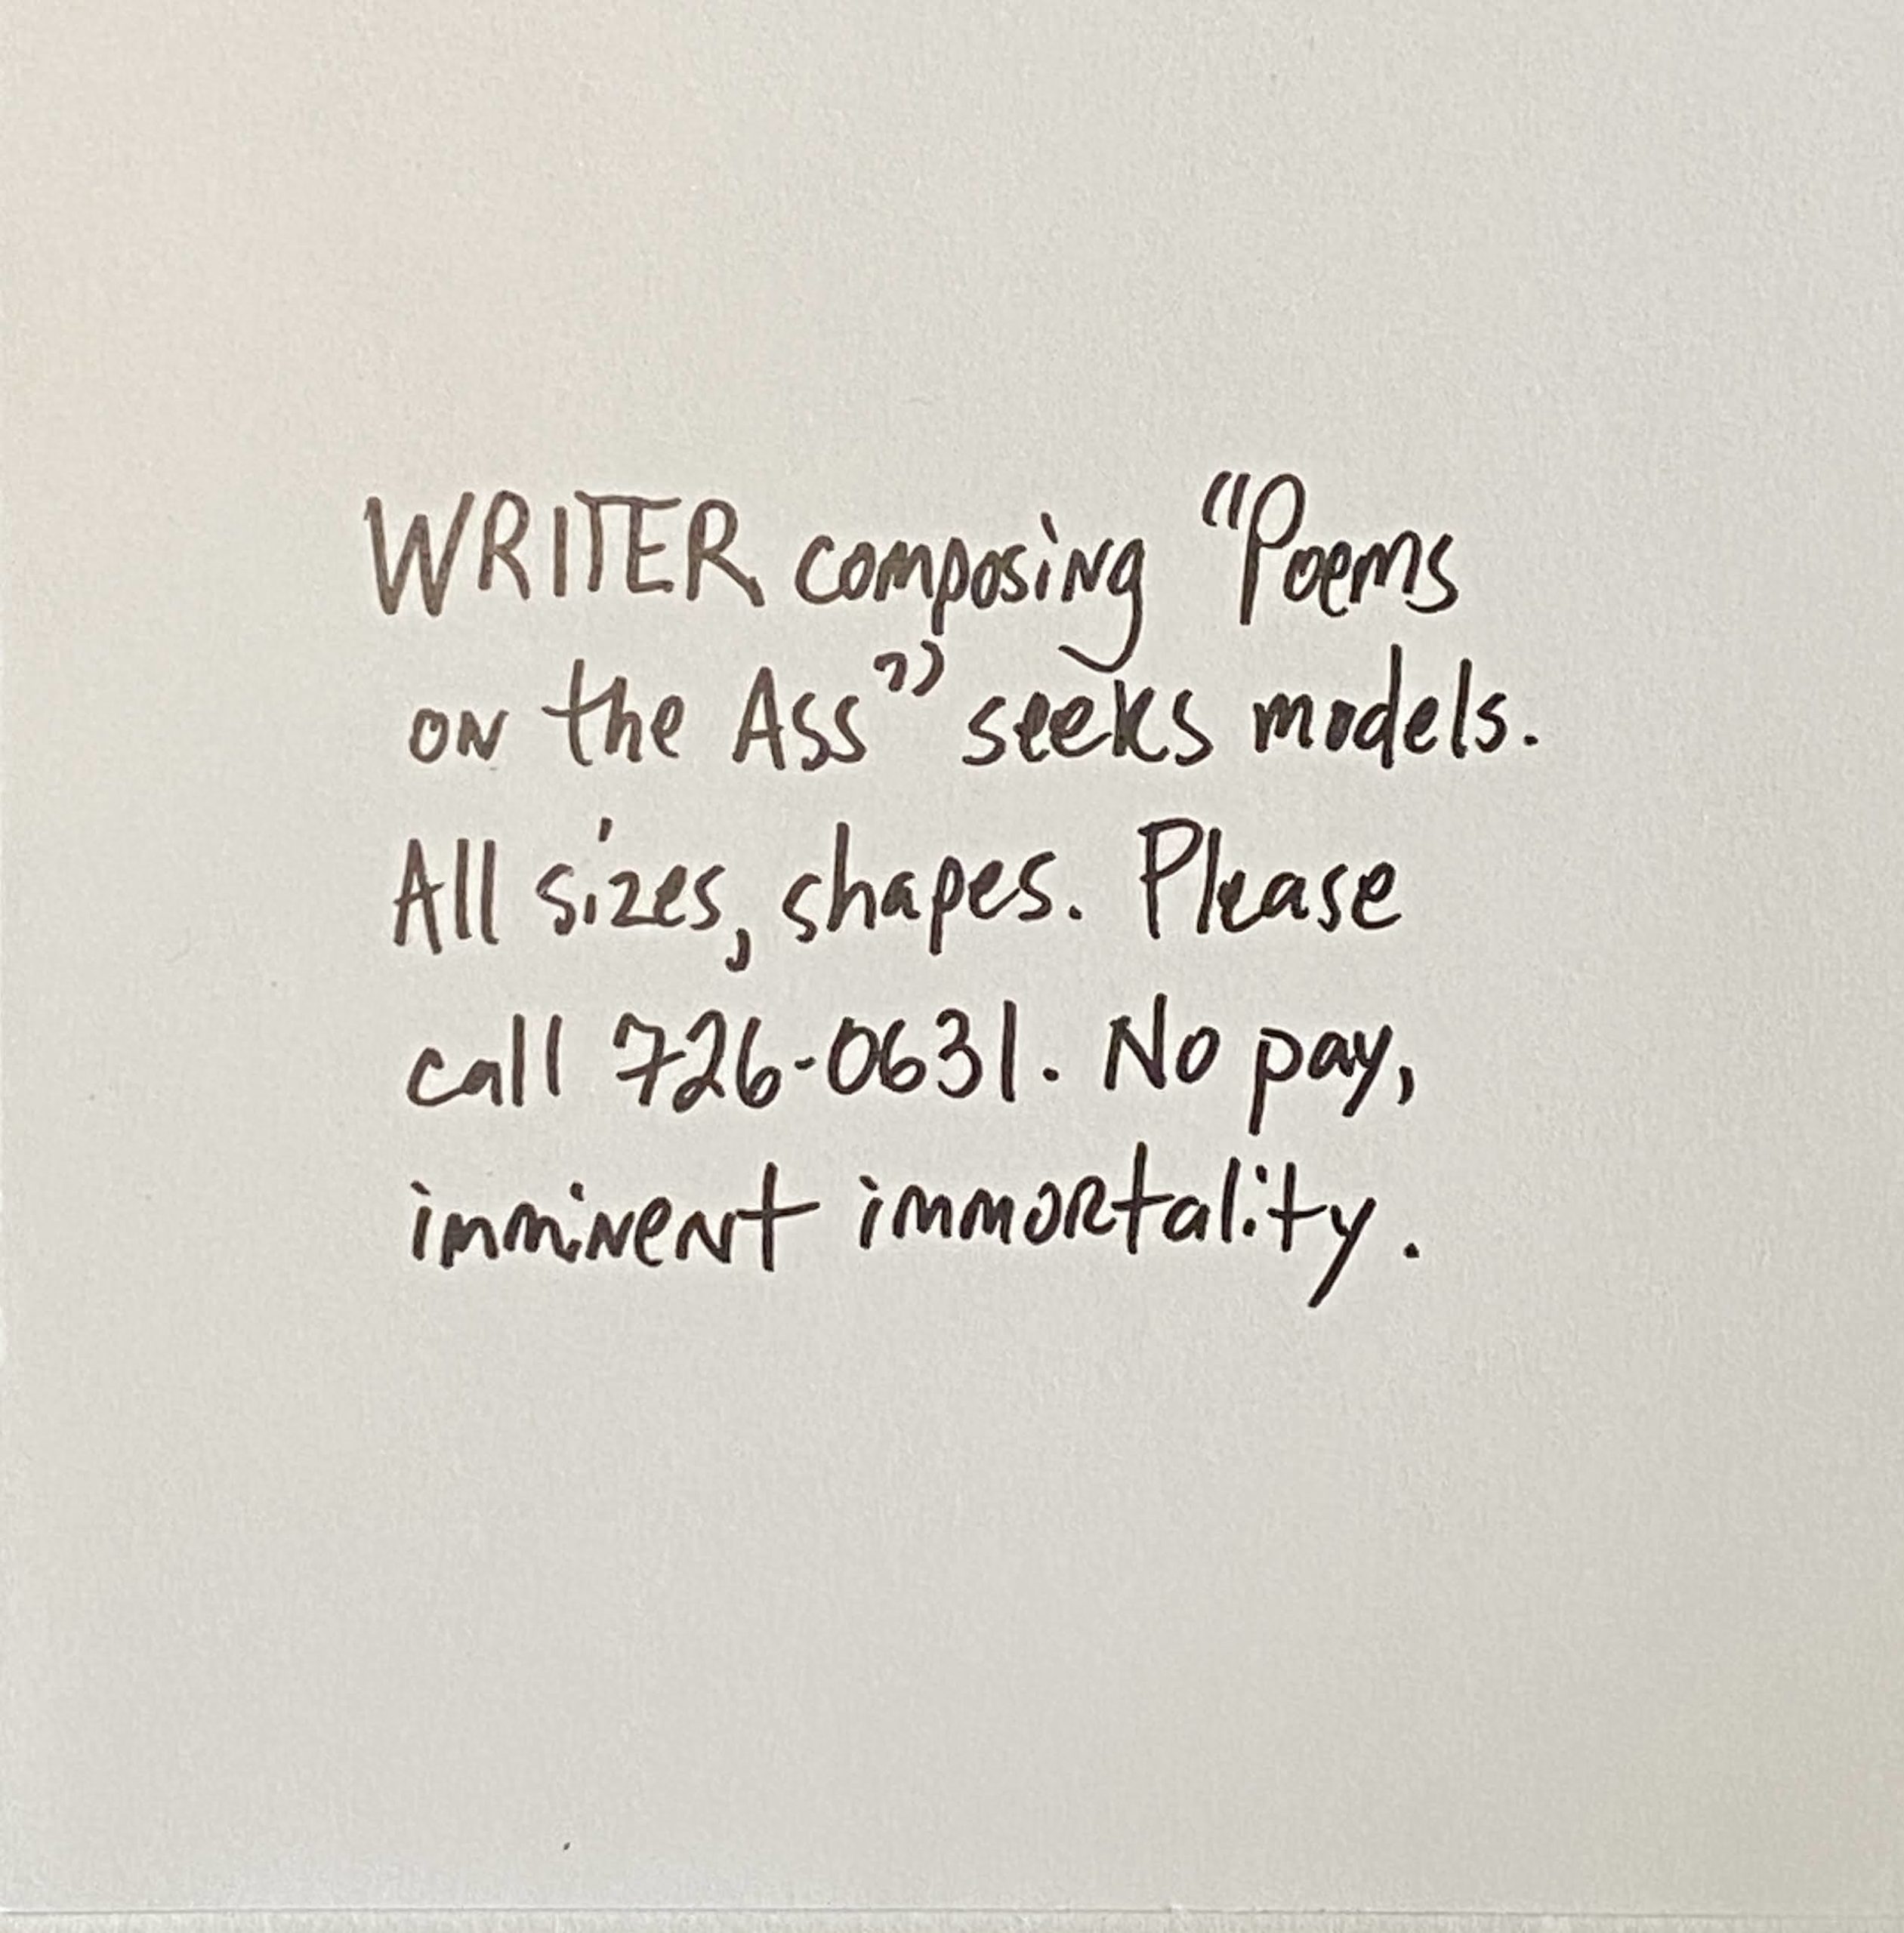 WRITER composing "Poems
on the Ass" seeks models.
All sizes, shapes. Please
call 726-0631. No pay,
imminent immortality.